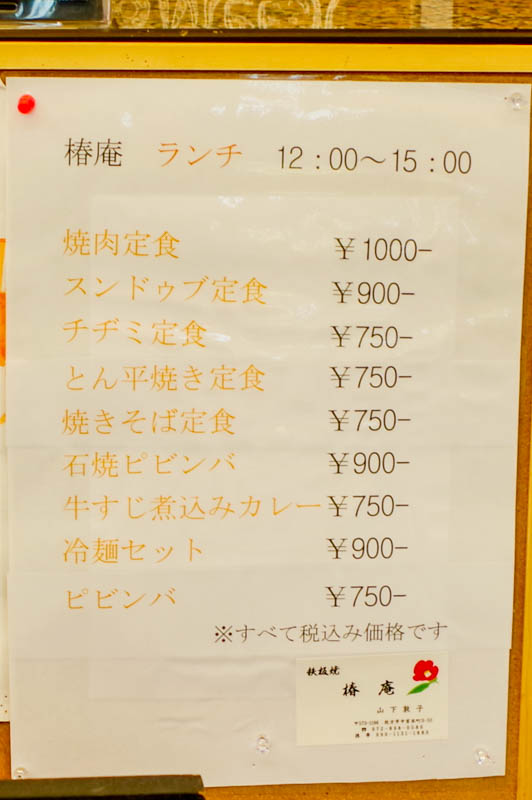 椿庵 ランチ 12：00～15：00
焼肉定食 ￥1000-
スンドゥブ定食 ￥900-
チヂミ定食 ￥750-
とん平焼き定食 ￥750-
焼きそば定食 ￥750-
石焼ピビンバ ￥900-
牛すじ煮込みカレー ￥750-
冷麺セット ￥900-
ピビンバ ￥750-
※すべて税込み価格です
鉄板焼
椿 庵
山下敦子